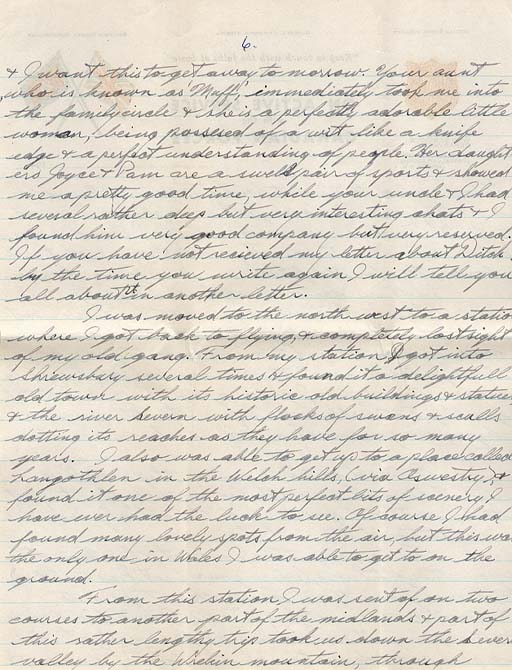 6.
& I want this to get away to morrow. Your aunt
who is known as "Muff", immediately took me into
the family circle & she is a perfectly adorable little
woman, being possesed of a wit like a knife
edge & a perfect understanding of people. Her daught
ers Joyce & Pam are a swell pair of sports & showed
me a pretty good time, while your uncle & I had
several rather deep but very interesting chats & I
found him very good company but very reserved.
If you have not recieved my letter about Ditch
by the time you write again I will tell you
all about it in another letter.
I was moved to the north west to a statio
where I got back to flying, & completely lost sight
of my old gang. From my station I got into
Shrewsbury several times & found it a delightfull
old town with its historic old buildings & statues
& the river Severn with flocks of swans & sculls
dotting its reaches as they have for so many
years. I also was able to get up to a place called
Langothlen in the Welch hills, (via Oswestry) &
found it one of the most perfect bits of scenery I
have ever had the luck to see. Of course I had
found many lovely spots from the air, but this was
the only one in Wales I was able to get to on the
ground.
From this station I was sent of on two
courses to another part of the midlands & part of
this rather lengthy trip took us down the Sever
valley by the Wrekin mountain, through